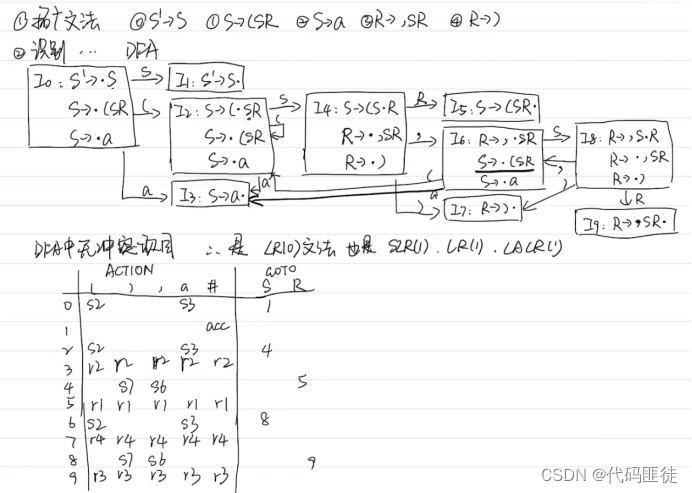 ① 拓广文法 ⓪ S'→S ① S→(SR ② S→a ③ R→,SR ④ R→)
② 识别 … DFA
I0: S'→·S
S→·(SR
S→·a
S
I1: S'→S·
(
I2: S→(·SR
S→·(SR
S→·a
(
S
I4: S→(S·R
R→·,SR
R→·)
R
I5: S→(SR·
,
I6: R→,·SR
S→·(SR
S→·a
S
I8: R→,S·R
R→·,SR
R→·)
,
(
a
a
I3: S→a·
a
)
I7: R→)·
)
R
I9: R→,SR·
DFA中无冲突项目 ∴ 是 LR(0)文法 也是 SLR(1). LR(1). LALR(1)
ACTION GOTO
( ) , a # S R
0 S2 S3 1
1 acc
2 S2 S3 4
3 r2 r2 r2 r2 r2
4 S7 S6 5
5 r1 r1 r1 r1 r1
6 S2 S3 8
7 r4 r4 r4 r4 r4
8 S7 S6 9
9 r3 r3 r3 r3 r3
CSDN @代码匪徒